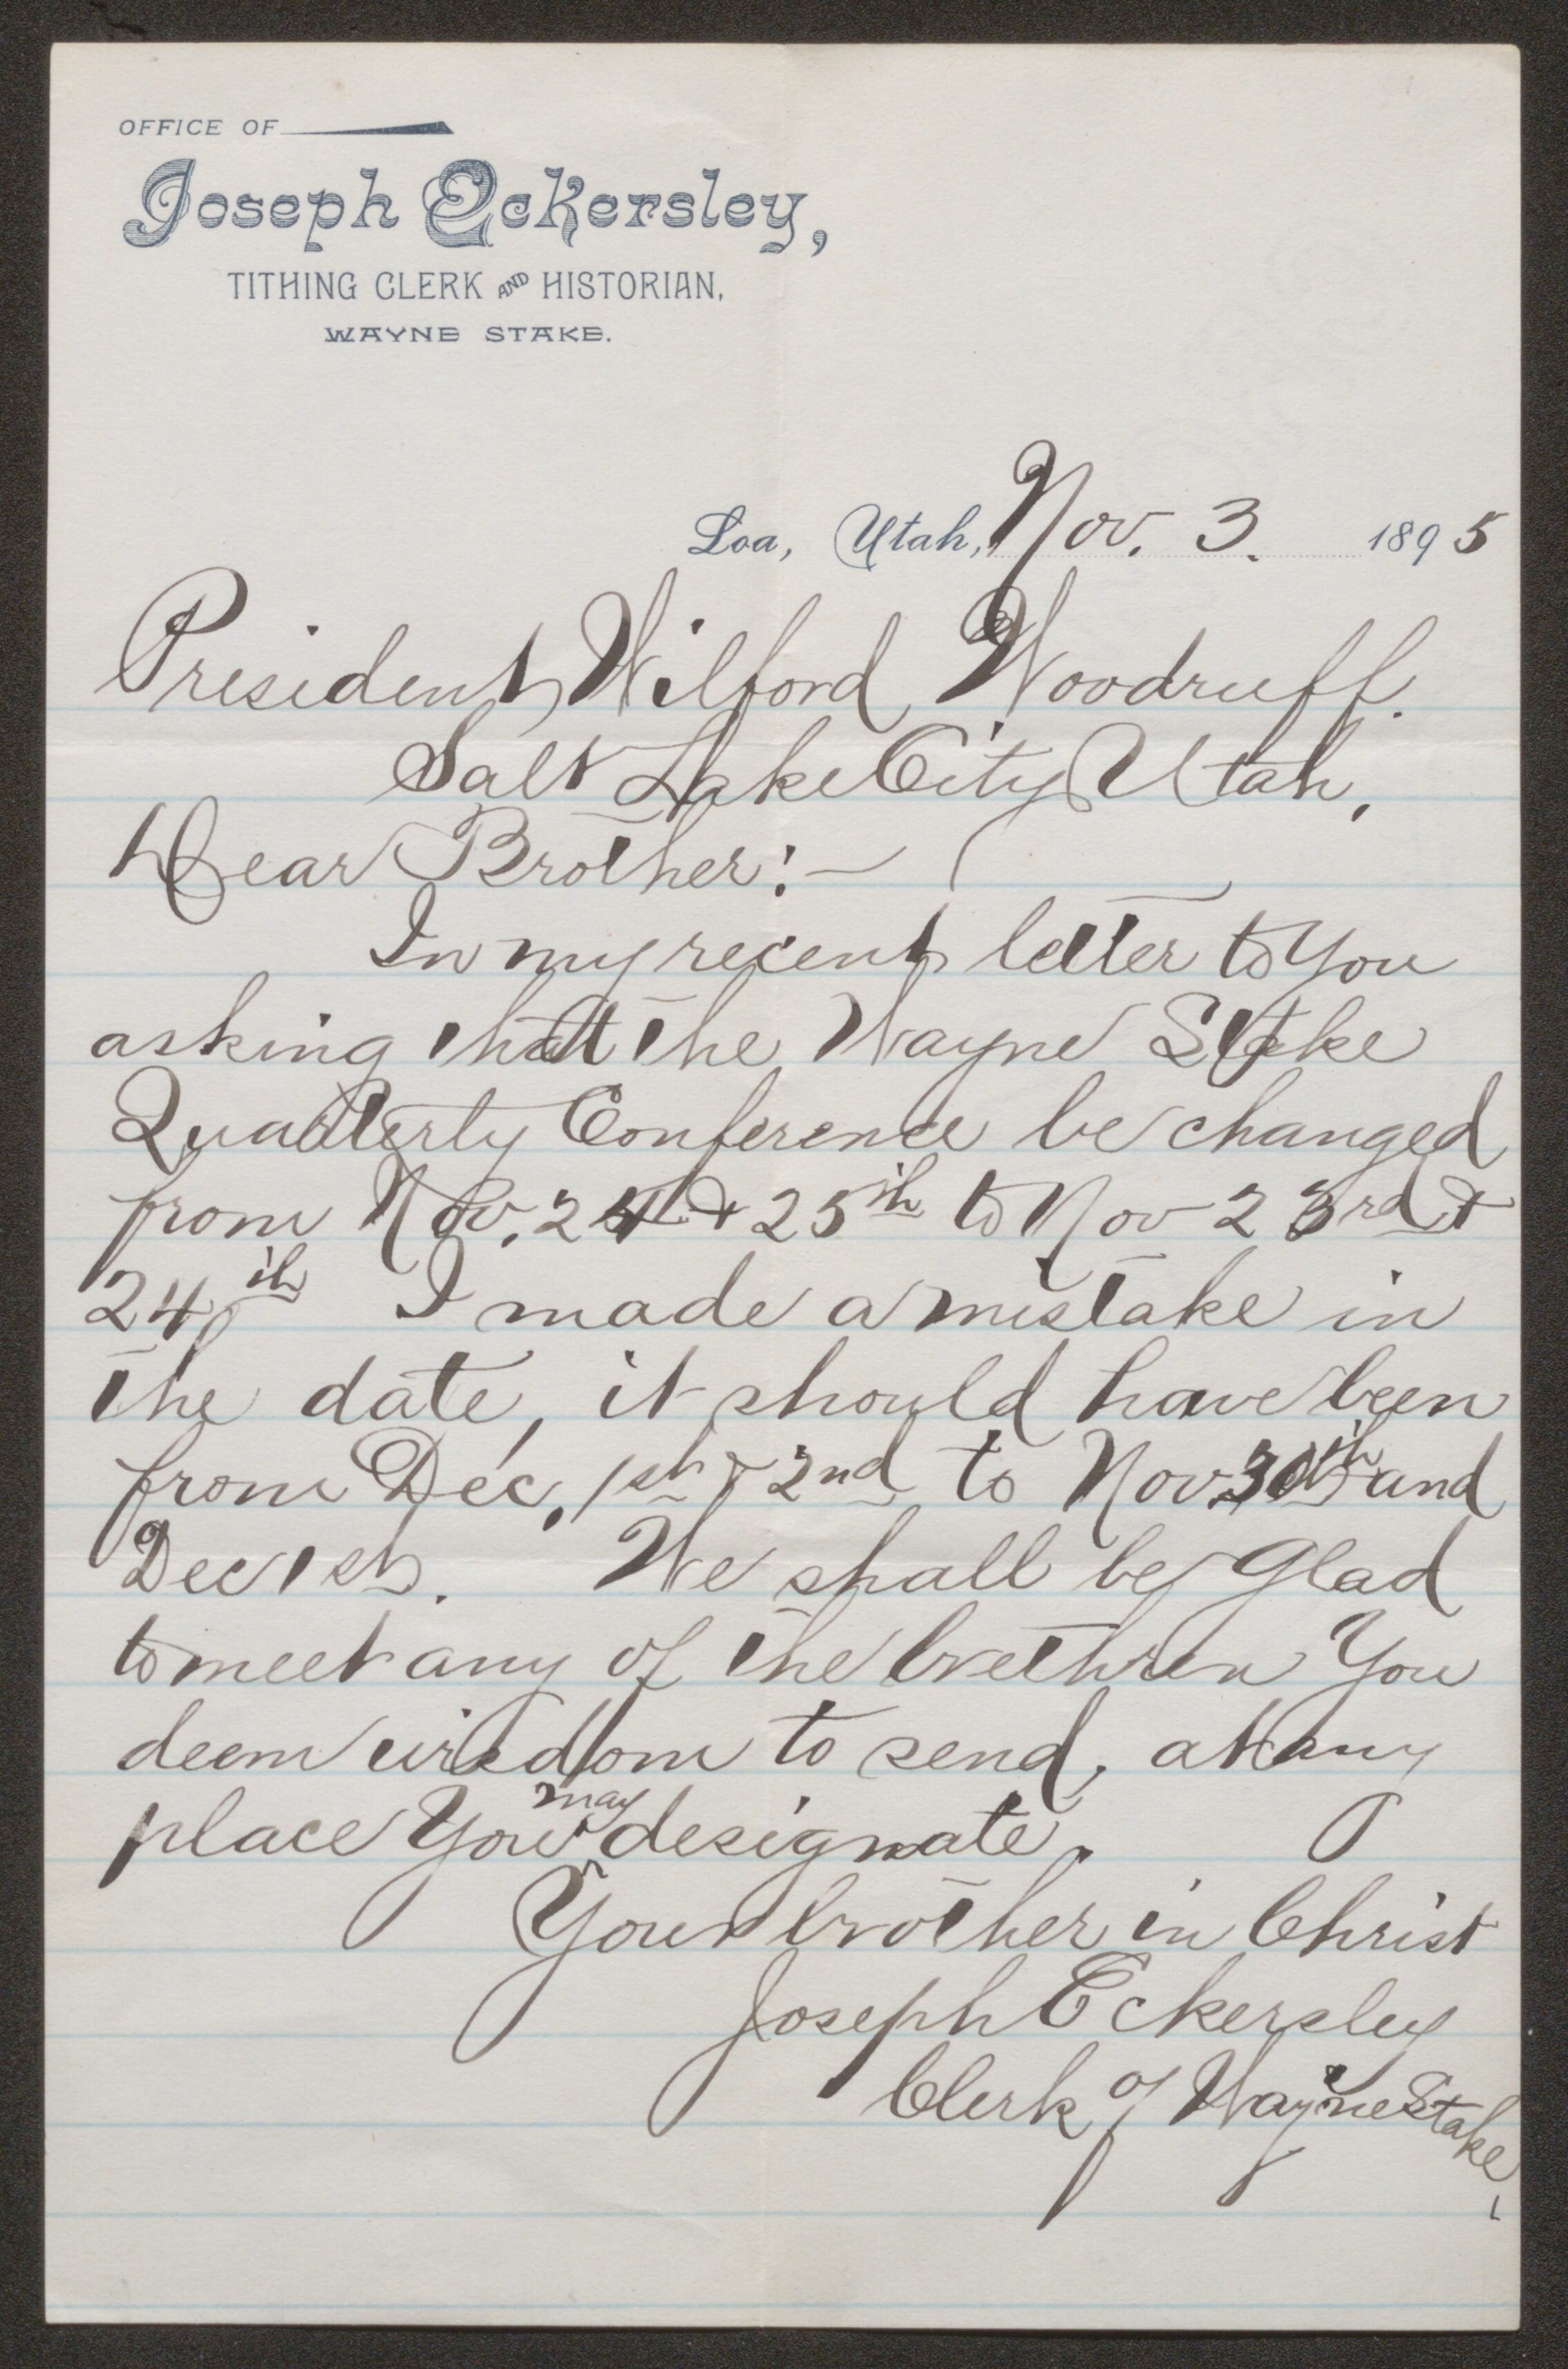 OFFICE OF
Joseph Eckersley,
TITHING CLERK AND HISTORIAN,
WAYNE STAKE.
Loa, Utah, Nov. 3. 1895
President Wilford Woodruff.
Salt Lake City Utah,
Dear Brother:—
In my recent letter to You
asking that the Wayne Stake
Quarterly Conference be changed
from Nov. 24 & 25th to Nov 23rd &
24th I made a mistake in
the date, it should have been
from Dec. 1st & 2nd to Nov 30th and
Dec 1st. We shall be glad
to meet any of the brethren You
deem wisdom to send, at any
place You may designate.
Your brother in Christ
Joseph Eckersley
Clerk of Wayne Stake.